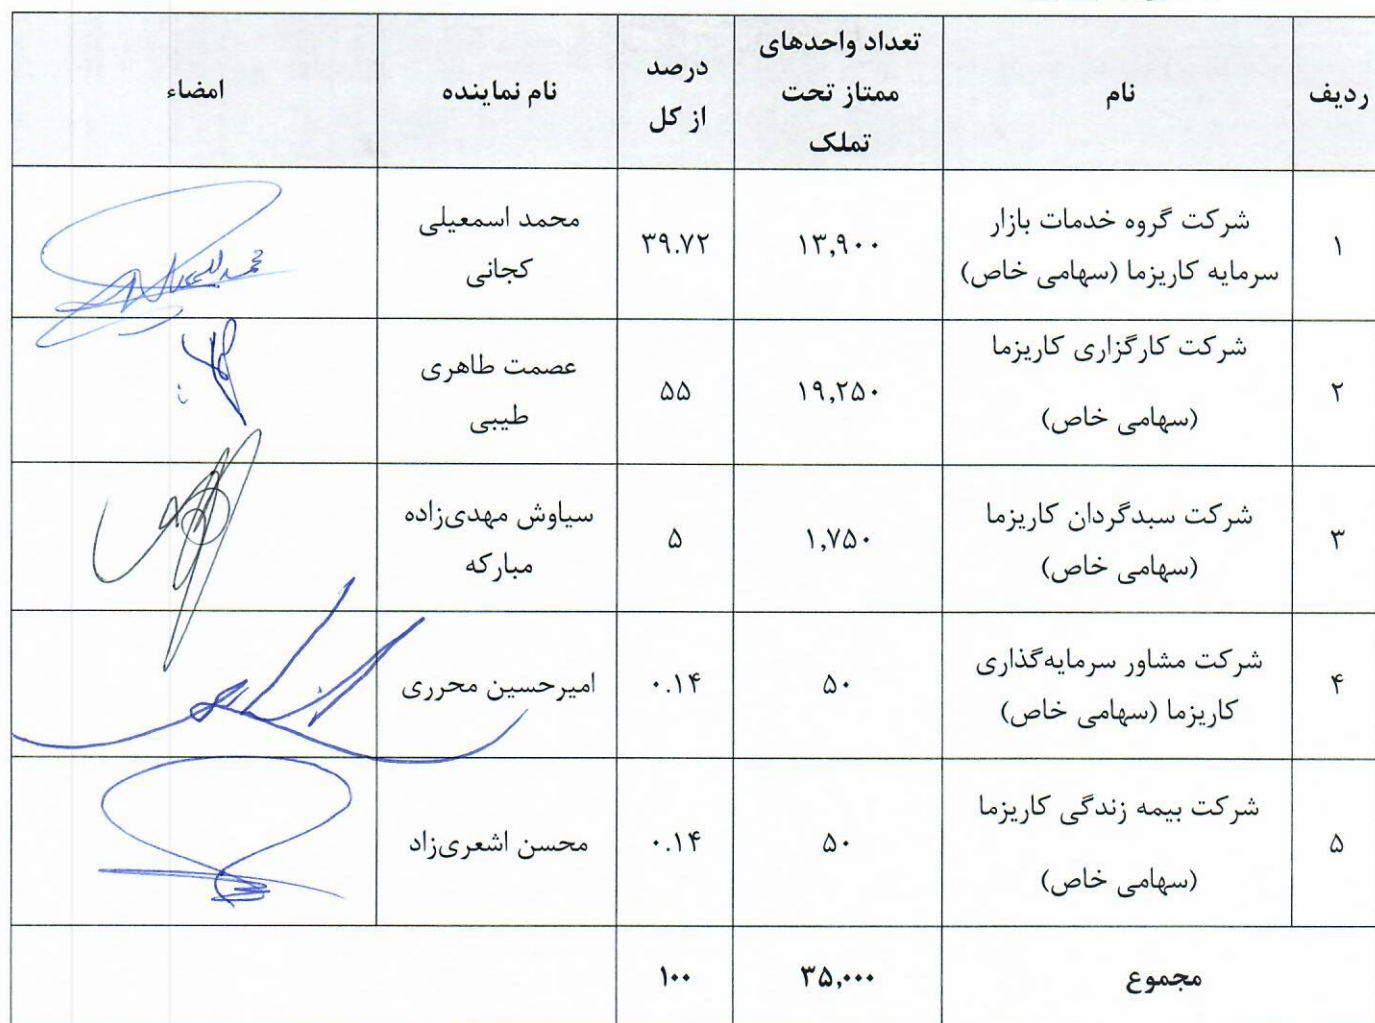 ردیف نام تعداد واحدهای ممتاز تحت تملک درصد از کل نام نماینده امضاء
۱ شرکت گروه خدمات بازار سرمایه کاریزما (سهامی خاص) ۱۳,۹۰۰ ۳۹.۷۲ محمد اسمعیلی کجانی
۲ شرکت کارگزاری کاریزما (سهامی خاص) ۱۹,۲۵۰ ۵۵ عصمت طاهری طیبی
۳ شرکت سبدگردان کاریزما (سهامی خاص) ۱,۷۵۰ ۵ سیاوش مهدی‌زاده مبارکه
۴ شرکت مشاور سرمایه‌گذاری کاریزما (سهامی خاص) ۵۰ ۰.۱۴ امیرحسین محرری
۵ شرکت بیمه زندگی کاریزما (سهامی خاص) ۵۰ ۰.۱۴ محسن اشعری‌زاد
مجموع ۳۵,۰۰۰ ۱۰۰